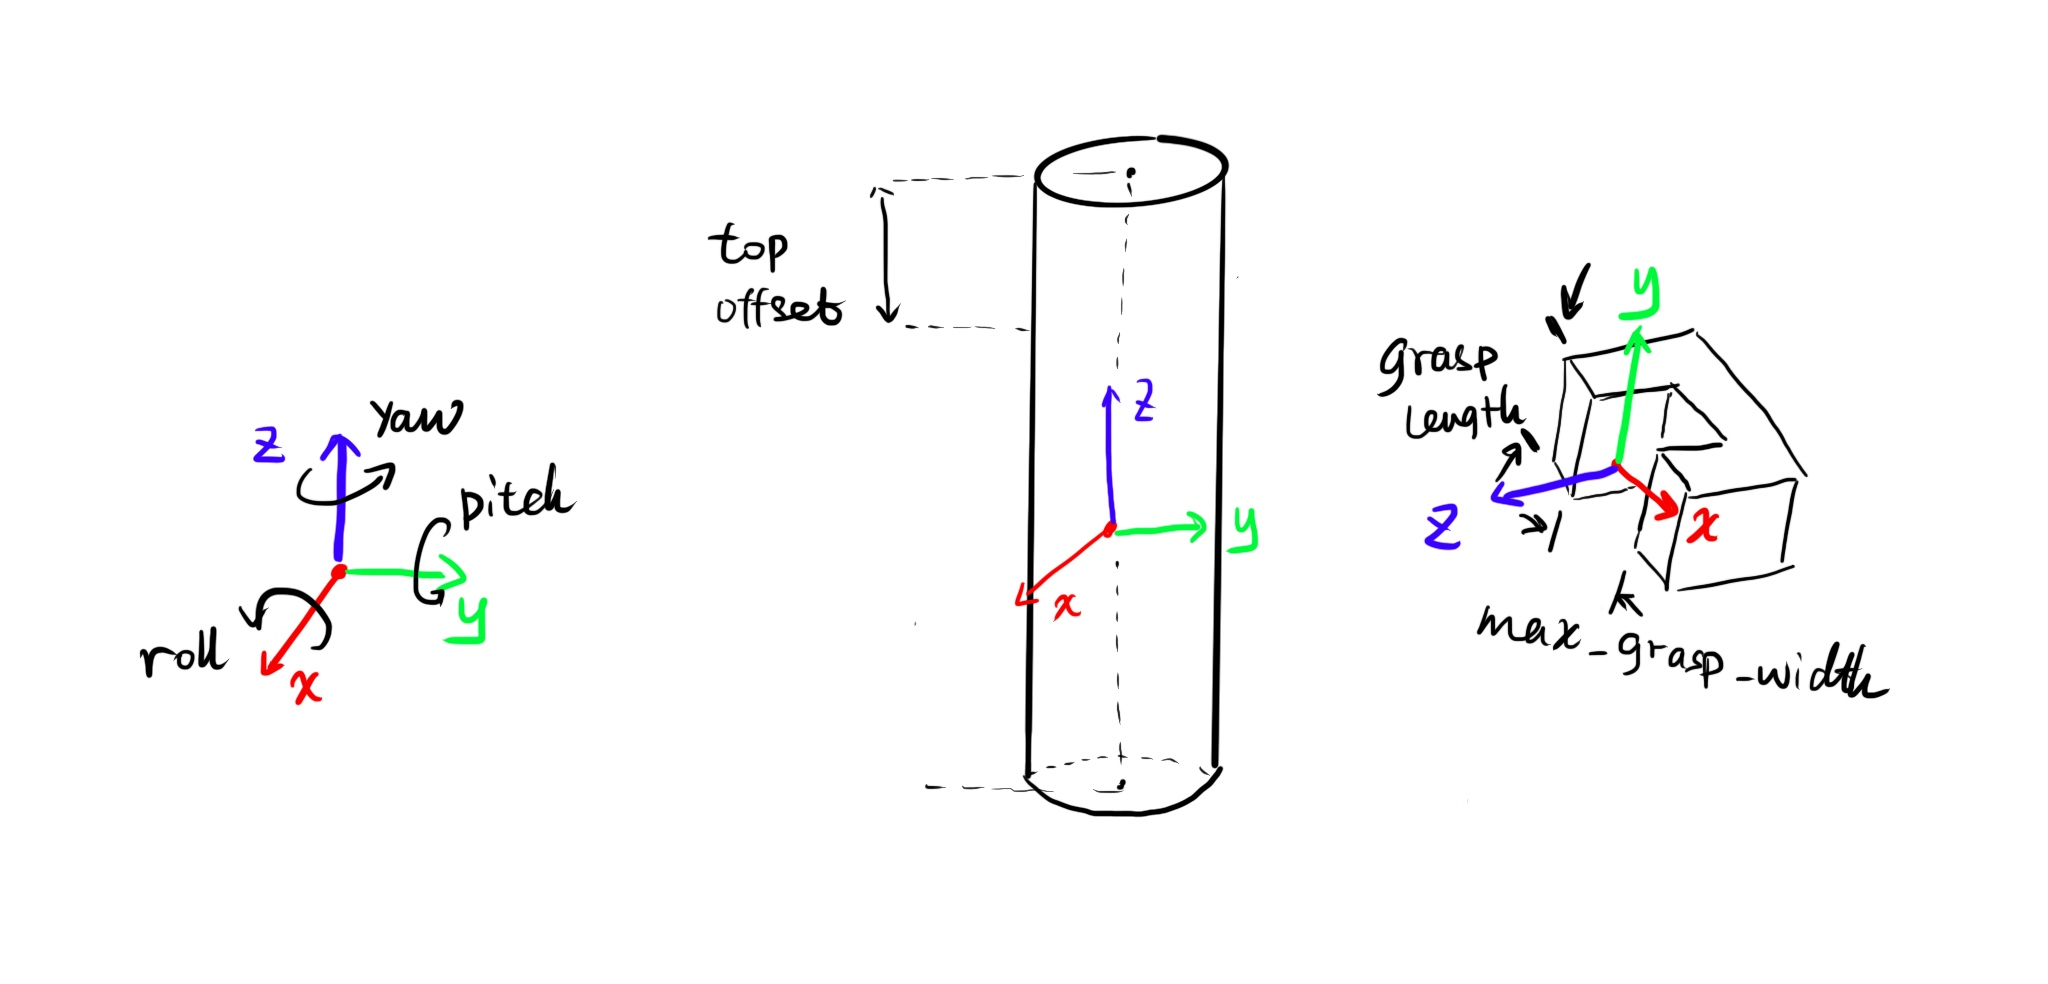 z
yaw
pitch
y
roll
x
top
offset
z
y
x
y
grasp
length
z
x
max_grasp_width